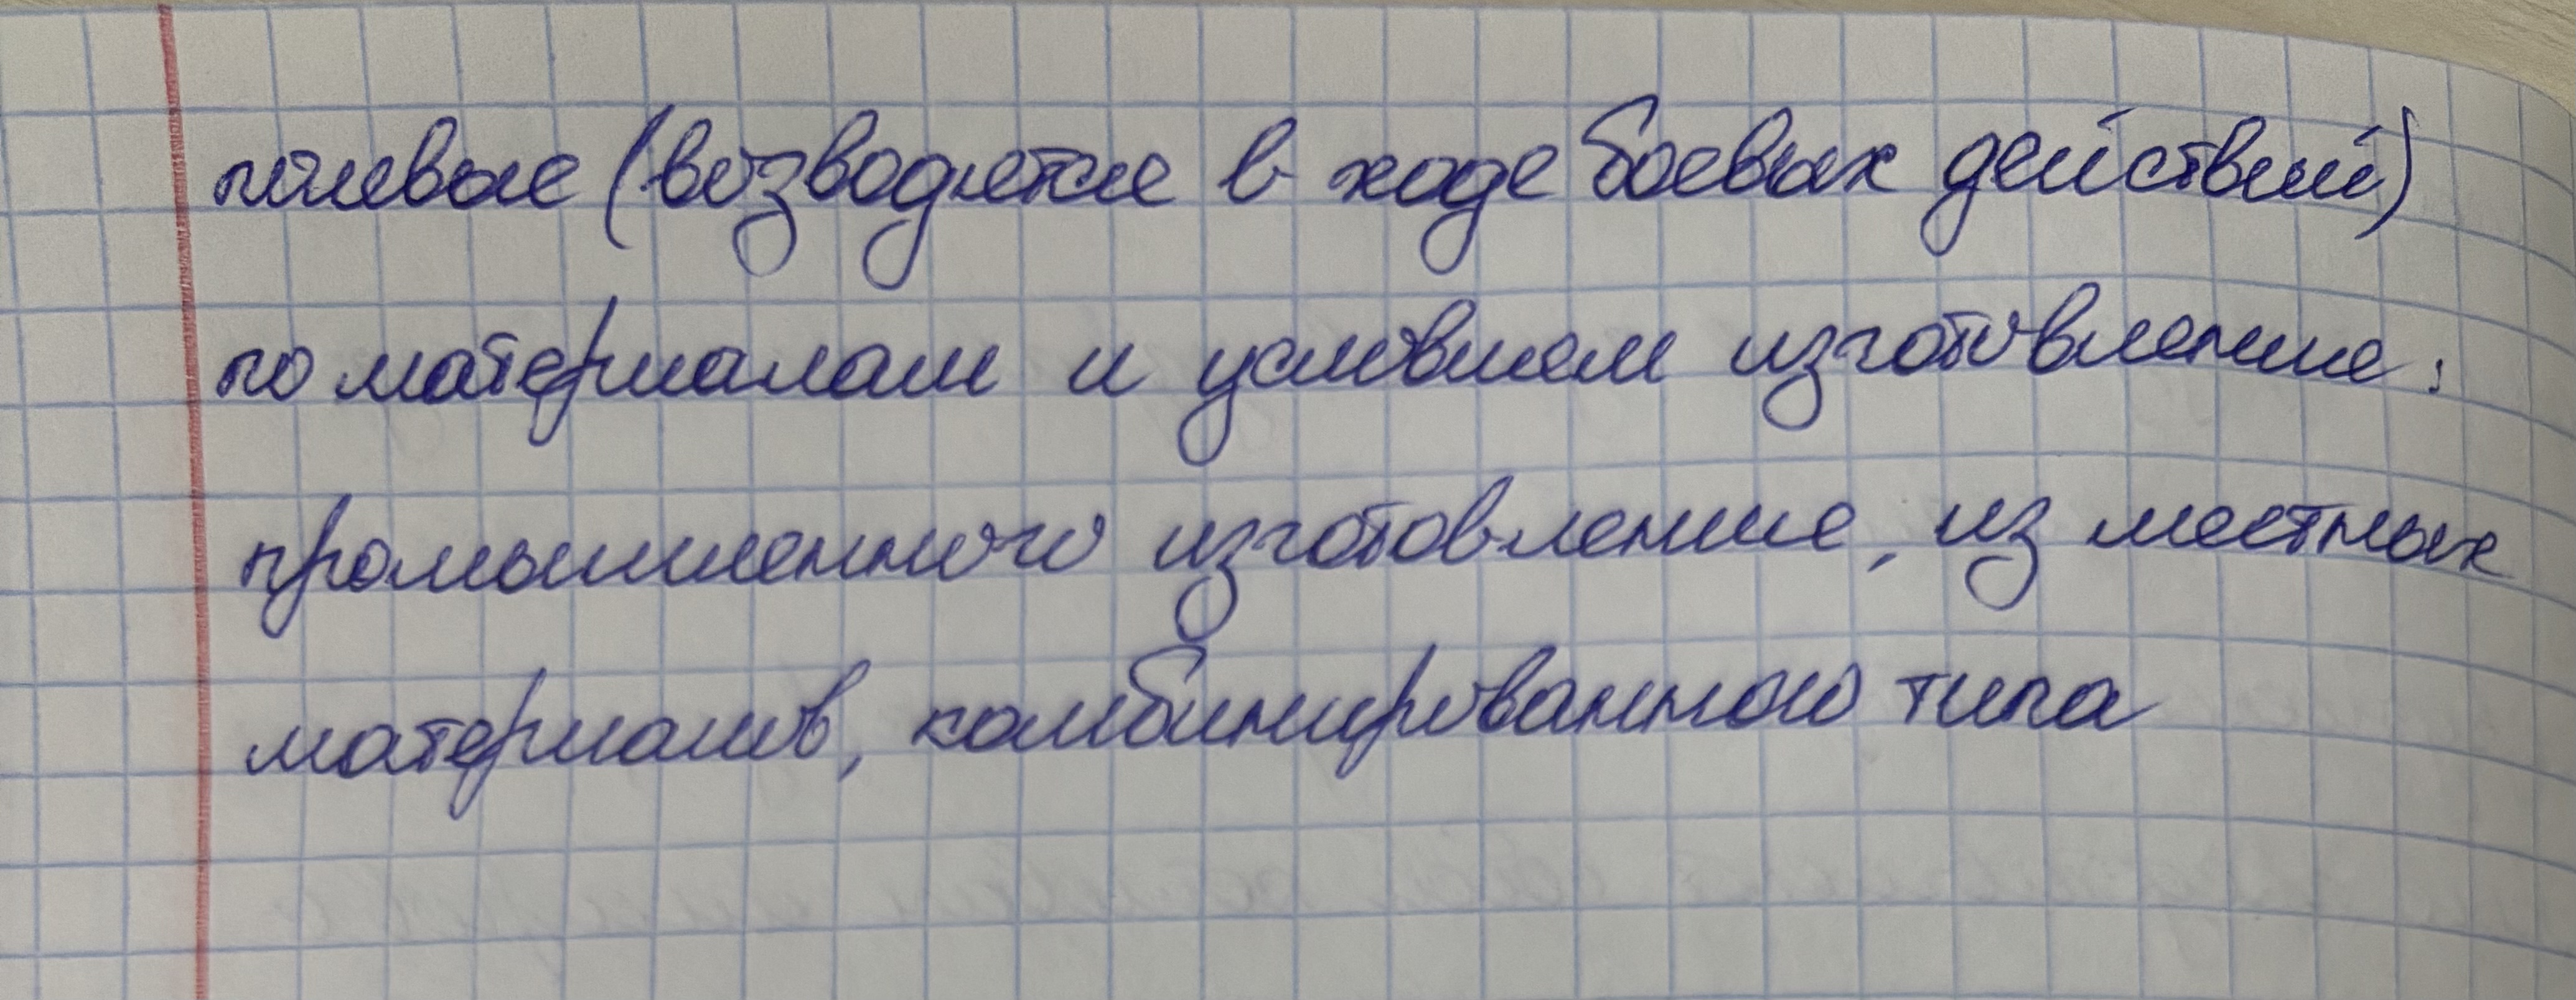 полевые (возводятся в ходе боевых действий)
по материалам и условиям изготовления:
промышленного изготовления, из местных
материалов, комбинированного типа